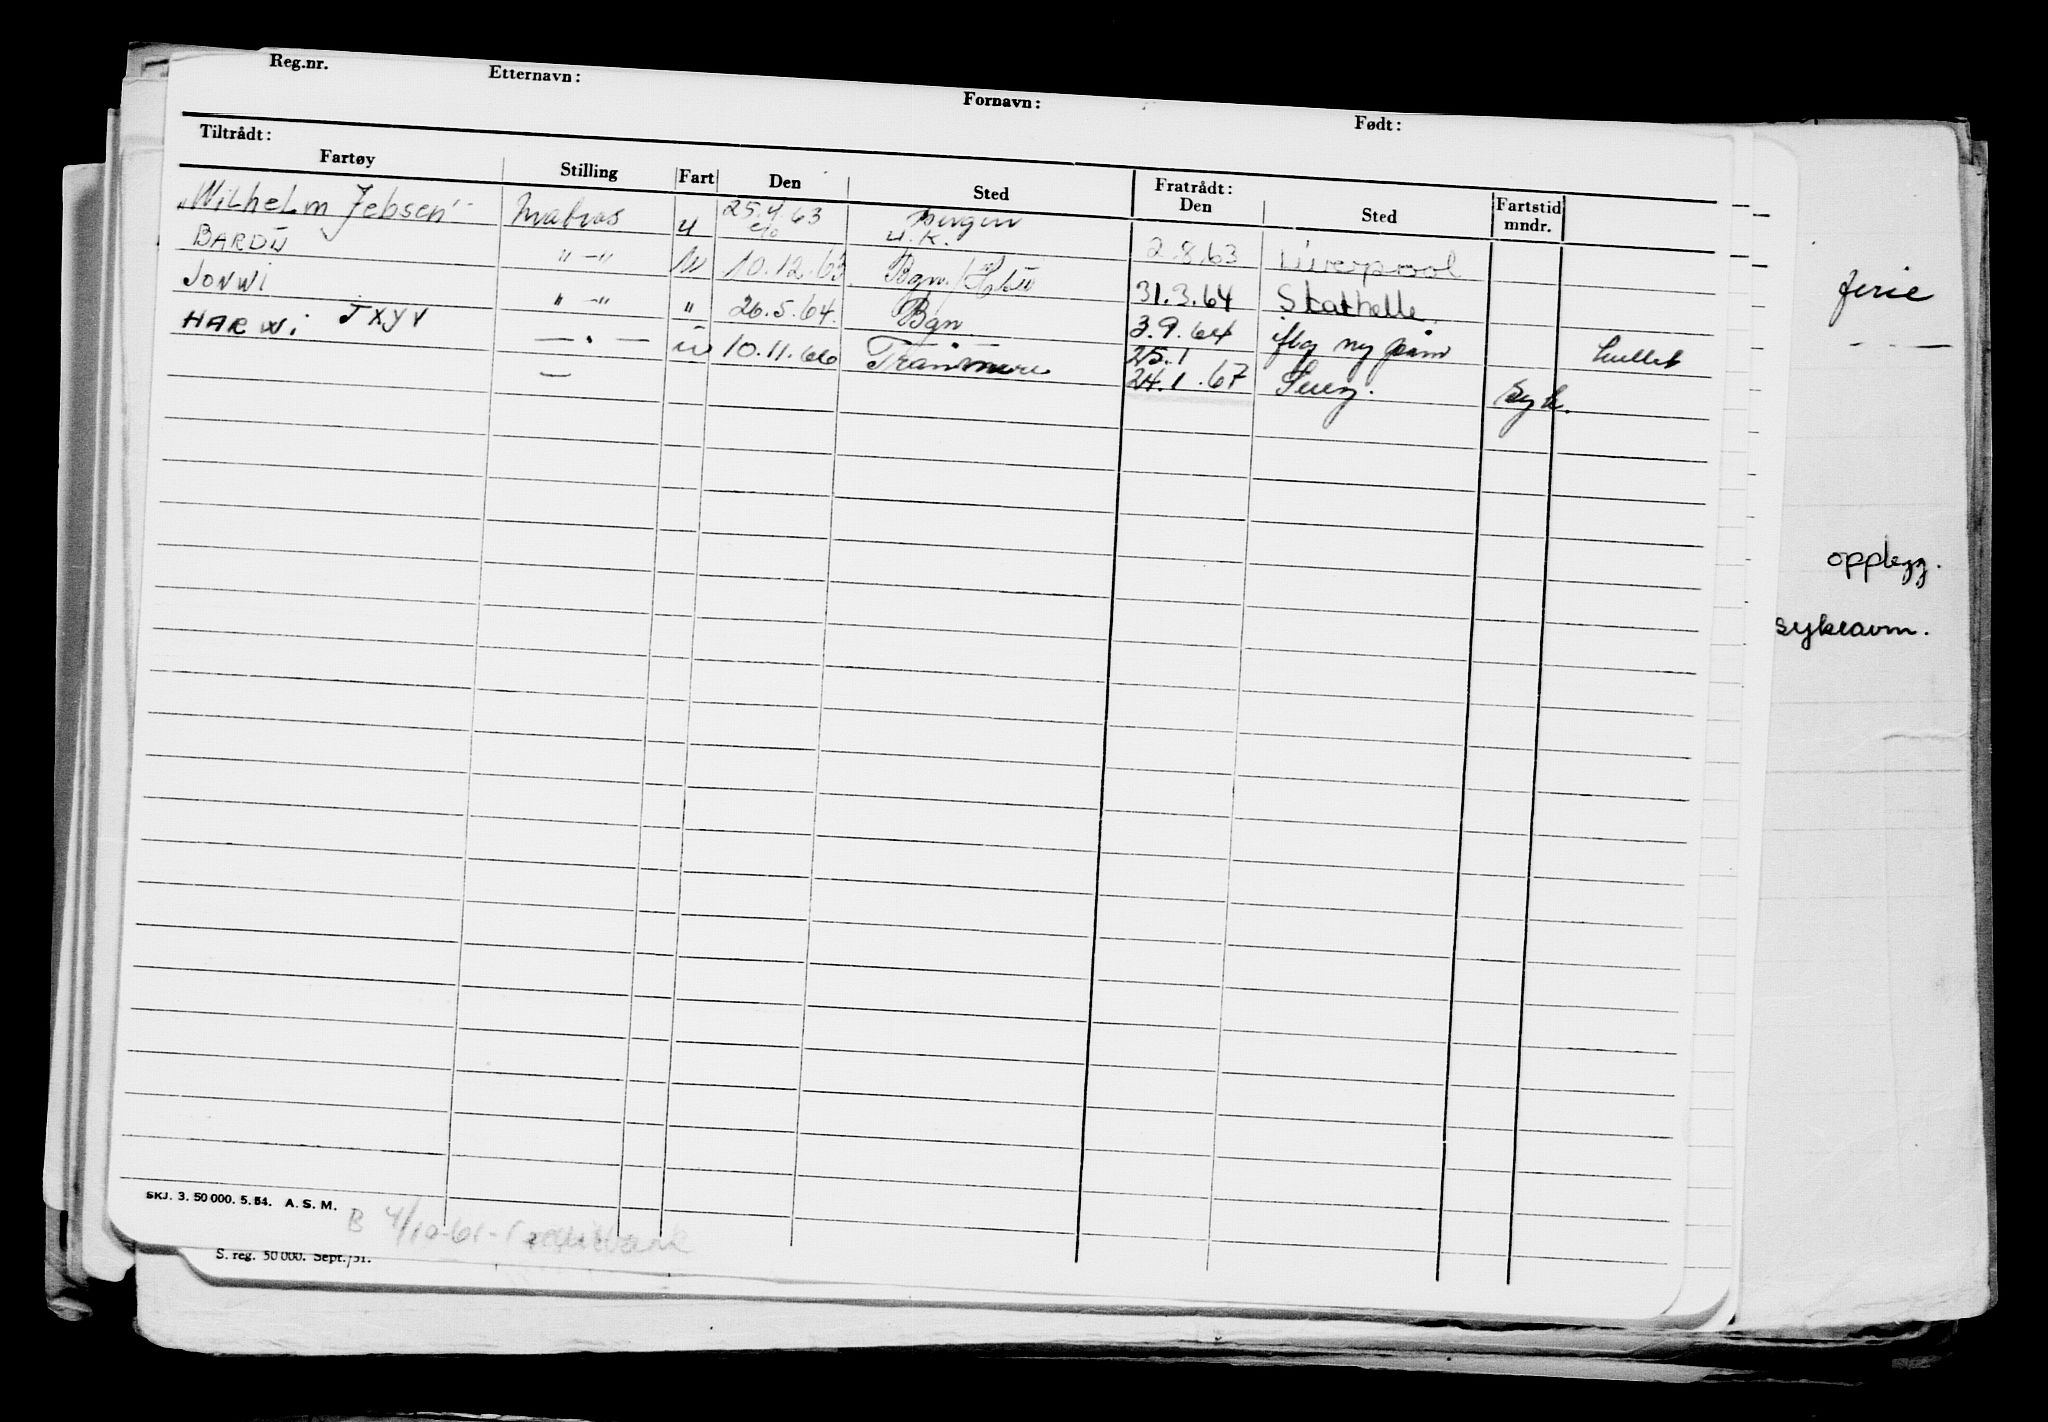 Reg.nr. Etternavn: Fornavn: Født:
Tiltrådt: Fratrådt:
Fartøy Stilling Fart Den Sted Den Sted Fartstid mndr.
"Wilhelm Jebsen" Matros u 25.4.63 Bergen 2.8.63 Liverpool
U.K.
BARDU " - " 10.12.63 Bgn. 31.3.64 Stathelle.
JONWI " - " " 26.5.64. Bgn 3.9.64 iflg ny hullet
HARWI JXYV — . — 10.11.66 Tranmere 25.1
— 24.1.67 Suez. Syk.
ferie
opplegg.
sykeavm.
SKJ. 3. 50 000. 5. 54. A. S. M.
B 4/10-61-
S. reg. 50 000. Sept./51.